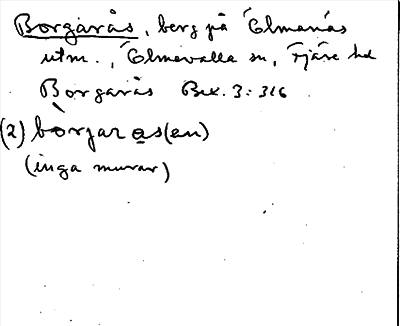 Borgarås, berg på Ölmanäs
utm., Ölmevalla sn, Fjäre hd
Borgarås Bex. 3: 316
(2) bòrjar as(en)
(inga murar)